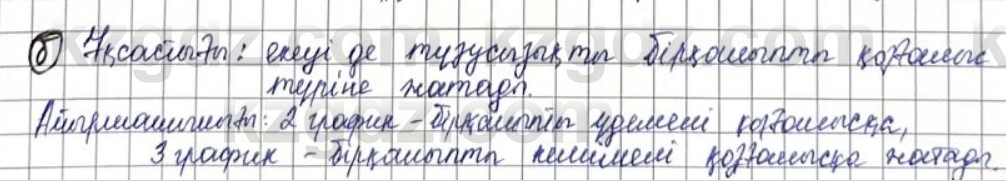 б) Ұқсастығы: екеуі де түзусызықты бірқалыпты қозғалыс
түріне жатады.
Айырмашылығы: 2 график - бірқалыпты үдемелі қозғалысқа,
3 график - бірқалыпты кемімелі қозғалысқа жатады.